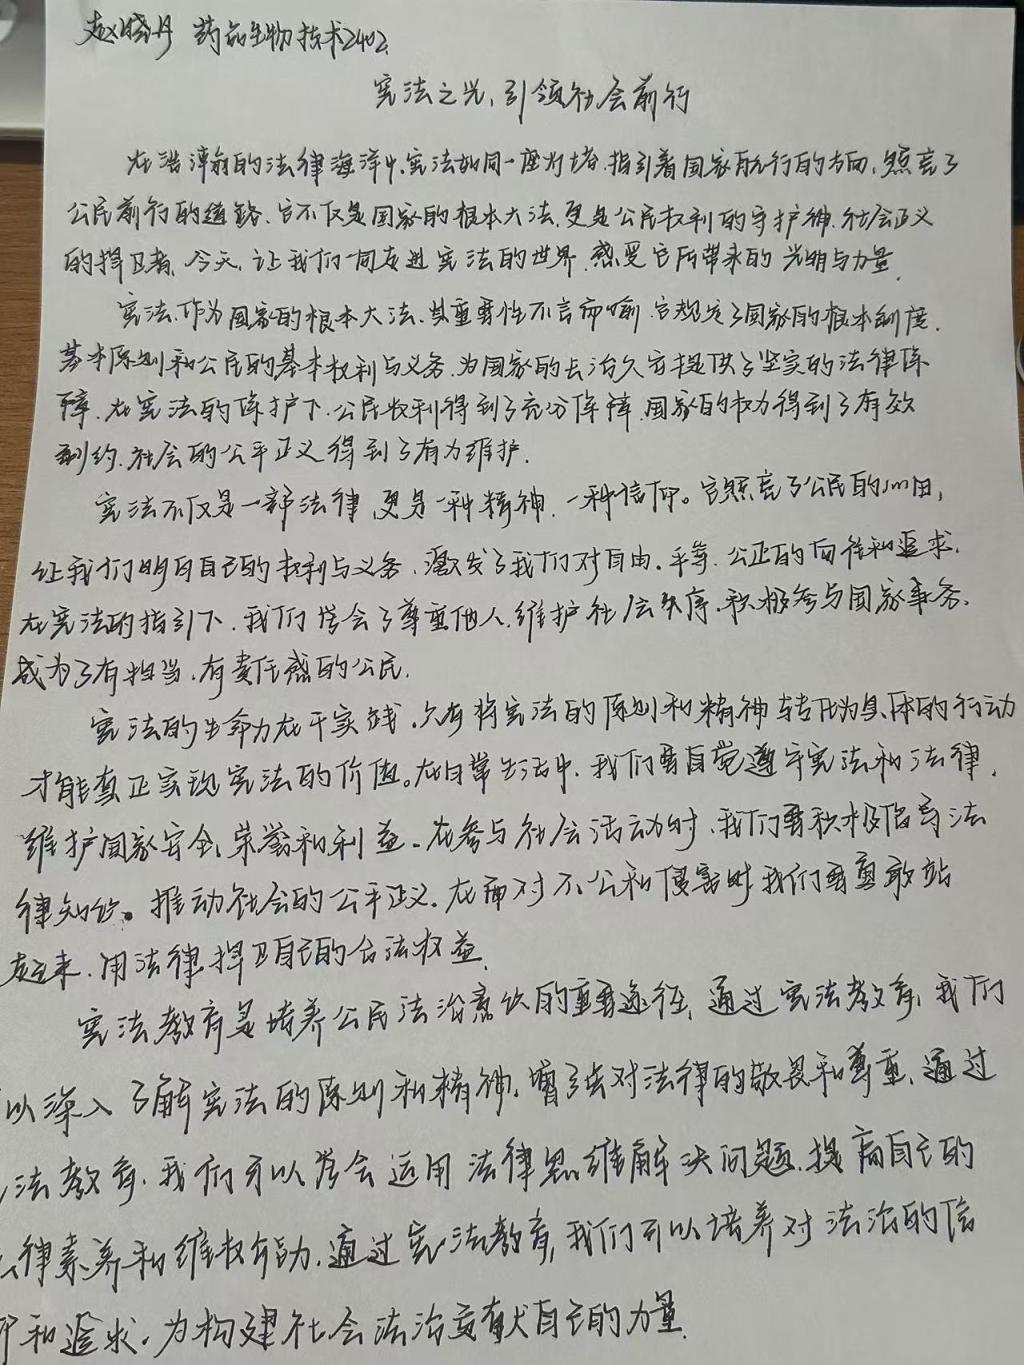 赵晓丹 药品生物技术2402
宪法之光,引领社会前行
在浩瀚的法律海洋中,宪法如同一座灯塔,指引着国家航行的方向,照亮了
公民前行的道路,它不仅是国家的根本大法,更是公民权利的守护神,社会正义
的捍卫者,今天,让我们一同走进宪法的世界,感受它所带来的光明与力量,
宪法,作为国家的根本大法,其重要性不言而喻,它规定了国家的根本制度,
基本原则和公民的基本权利与义务,为国家的长治久安提供了坚实的法律保
障,在宪法的保护下,公民权利得到了充分保障,国家的权力得到了有效
制约,社会的公平正义得到了有力维护,
宪法不仅是一部法律,更是一种精神,一种信仰。它照亮了公民的心田,
让我们明白自己的权利与义务,激发了我们对自由。平等,公正的向往和追求,
在宪法的指引下,我们学会了尊重他人,维护社会秩序,积极参与国家事务,
成为了有担当,有责任感的公民,
宪法的生命力在于实践,只有将宪法的原则和精神转化为具体的行动
才能真正实现宪法的价值。在日常生活中,我们要自觉遵守宪法和法律,
维护国家安全,荣誉和利益。在参与社会活动时,我们要积极倡导法
律知识。推动社会的公平正义。在面对不公和侵害时,我们要勇敢站
起来,用法律捍卫自己的合法权益,
宪法教育是培养公民法治意识的重要途径,通过宪法教育,我们
以深入了解宪法的原则和精神,增强对法律的敬畏和尊重,通过
法教育,我们可以学会运用法律思维解决问题,提高自己的
律素养和维权能力,通过宪法教育,我们可以培养对法治的信
仰和追求,为构建社会法治贡献自己的力量,